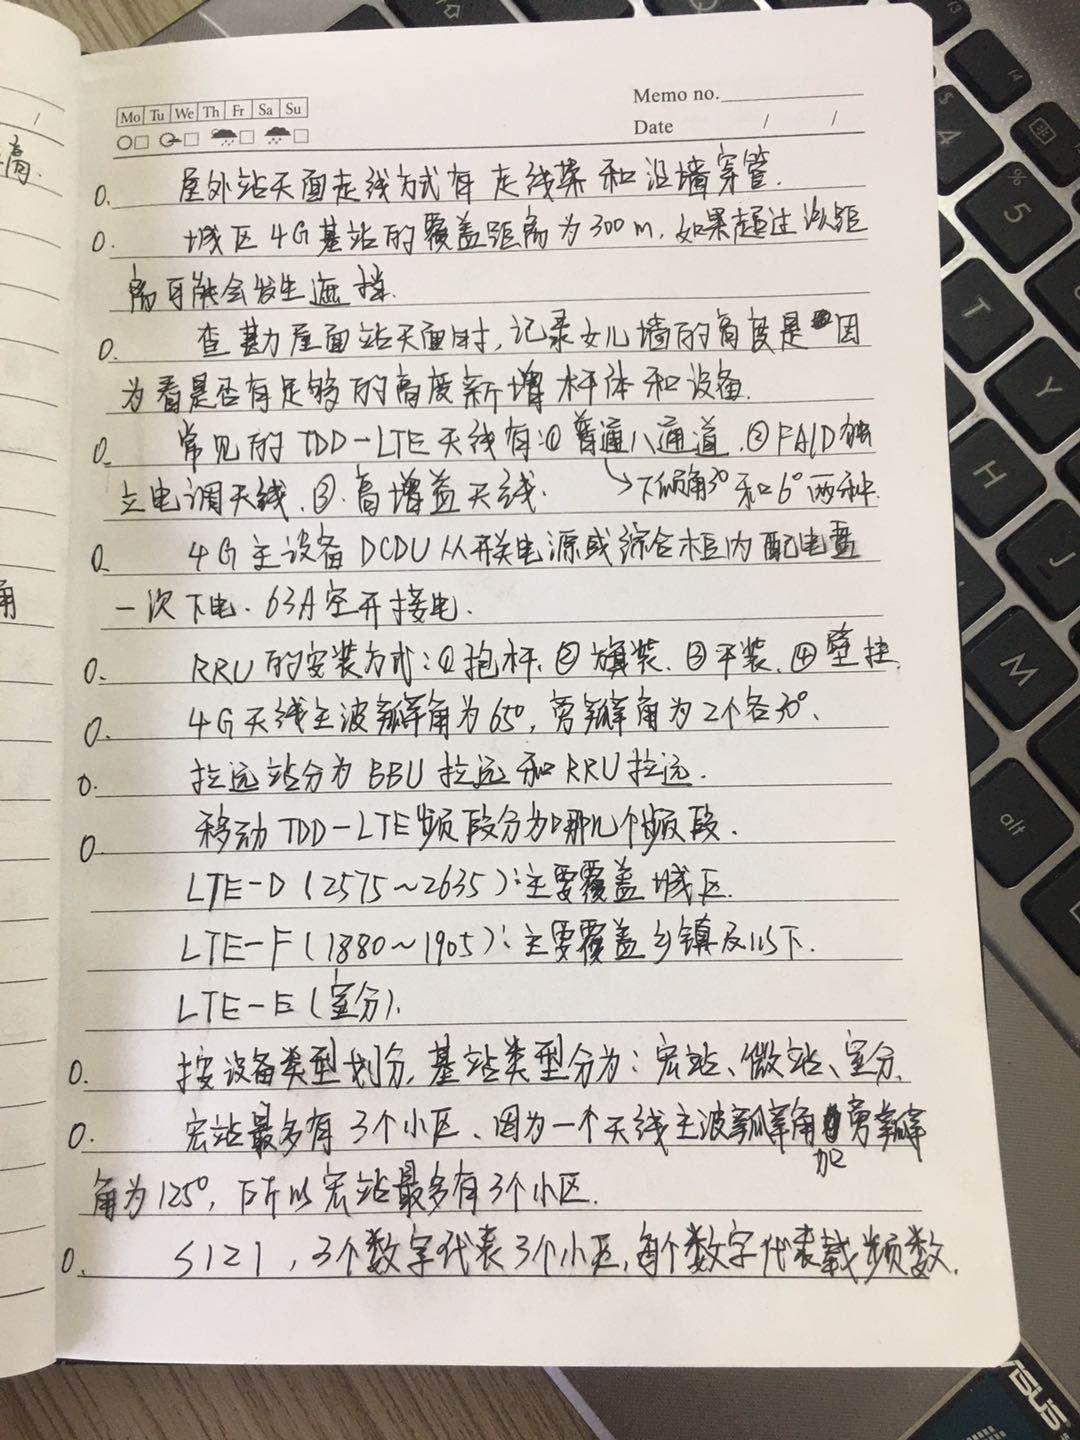 Mo Tu We Th Fr Sa Su
Memo no.
Date / /
高.
角
0. 屋外站天面走线方式有 走线架 和 沿墙穿管.
0. 城区4G基站的覆盖距离为300m, 如果超过该距
离可能会发生遮挡.
0. 查勘屋面站天面时, 记录女儿墙的角度是因
为看是否有足够的高度新增杆体和设备.
0. 常见的TDD-LTE天线有:① 普通八通道.②FA/D独
立电调天线.③.高增益天线. →下倾角3°和6°两种.
0. 4G主设备DCDU从开关电源或综合柜内配电盒
一次下电.63A空开接电.
0. RRU的安装方式:①抱杆.②旗装.③平装.④壁挂.
0. 4G天线主波瓣角为65°, 旁瓣角为2个各30°、
0. 拉远站分为BBU拉远和RRU拉远.
0. 移动TDD-LTE频段分为哪几个频段.
LTE-D(2575~2635):主要覆盖城区.
LTE-F(1880~1905):主要覆盖乡镇及以下.
LTE-E(室分).
0. 按设备类型划分, 基站类型分为:宏站、微站、室分.
0. 宏站最多有3个小区、因为一个天线主波瓣角加旁瓣
角为125°, 所以宏站最多有3个小区.
0. S121, 3个数字代表3个小区, 每个数字代表载频数.
13
14
4
%
5
T
Y
H
J
M
alt
ASUS